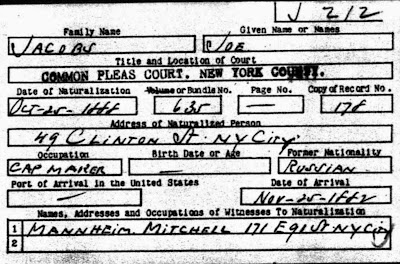 J 212
Family Name Given Name or Names
JACOBS JOE
Title and Location of Court
COMMON PLEAS COURT. NEW YORK COUNTY.
Date of Naturalization Volume or Bundle No. Page No. Copy of Record No.
Oct-25-1888 635 — 178
Address of Naturalized Person
49 CLINTON St. NY City
Occupation Birth Date or Age Former Nationality
CAP MAKER — RUSSIAN
Port of Arrival in the United States Date of Arrival
— Nov-25-1882
Names, Addresses and Occupations of Witnesses To Naturalization
1 MANNHEIM MITCHELL 171 E 91 St NY City
2